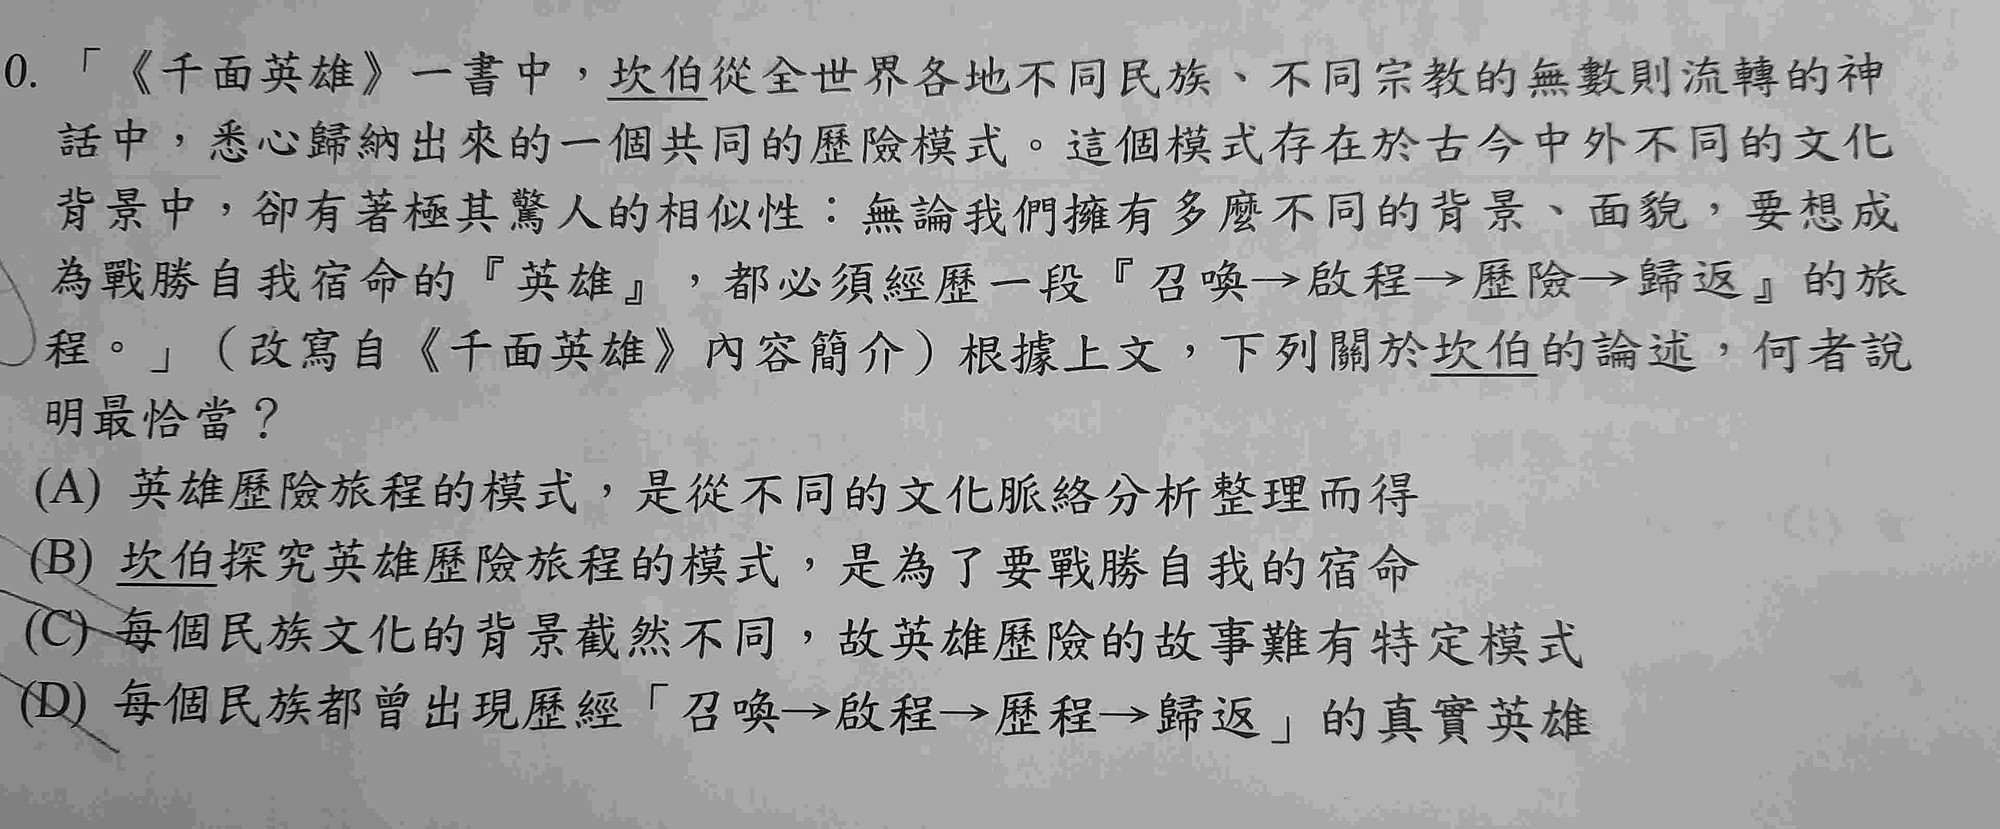 0. 「《千面英雄》一書中，坎伯從全世界各地不同民族、不同宗教的無數則流轉的神
話中，悉心歸納出來的一個共同的歷險模式。這個模式存在於古今中外不同的文化
背景中，卻有著極其驚人的相似性：無論我們擁有多麼不同的背景、面貌，要想成
為戰勝自我宿命的『英雄』，都必須經歷一段『召喚→啟程→歷險→歸返』的旅
程。」（改寫自《千面英雄》內容簡介）根據上文，下列關於坎伯的論述，何者說
明最恰當？
(A) 英雄歷險旅程的模式，是從不同的文化脈絡分析整理而得
(B) 坎伯探究英雄歷險旅程的模式，是為了要戰勝自我的宿命
(C) 每個民族文化的背景截然不同，故英雄歷險的故事難有特定模式
(D) 每個民族都曾出現歷經「召喚→啟程→歷程→歸返」的真實英雄